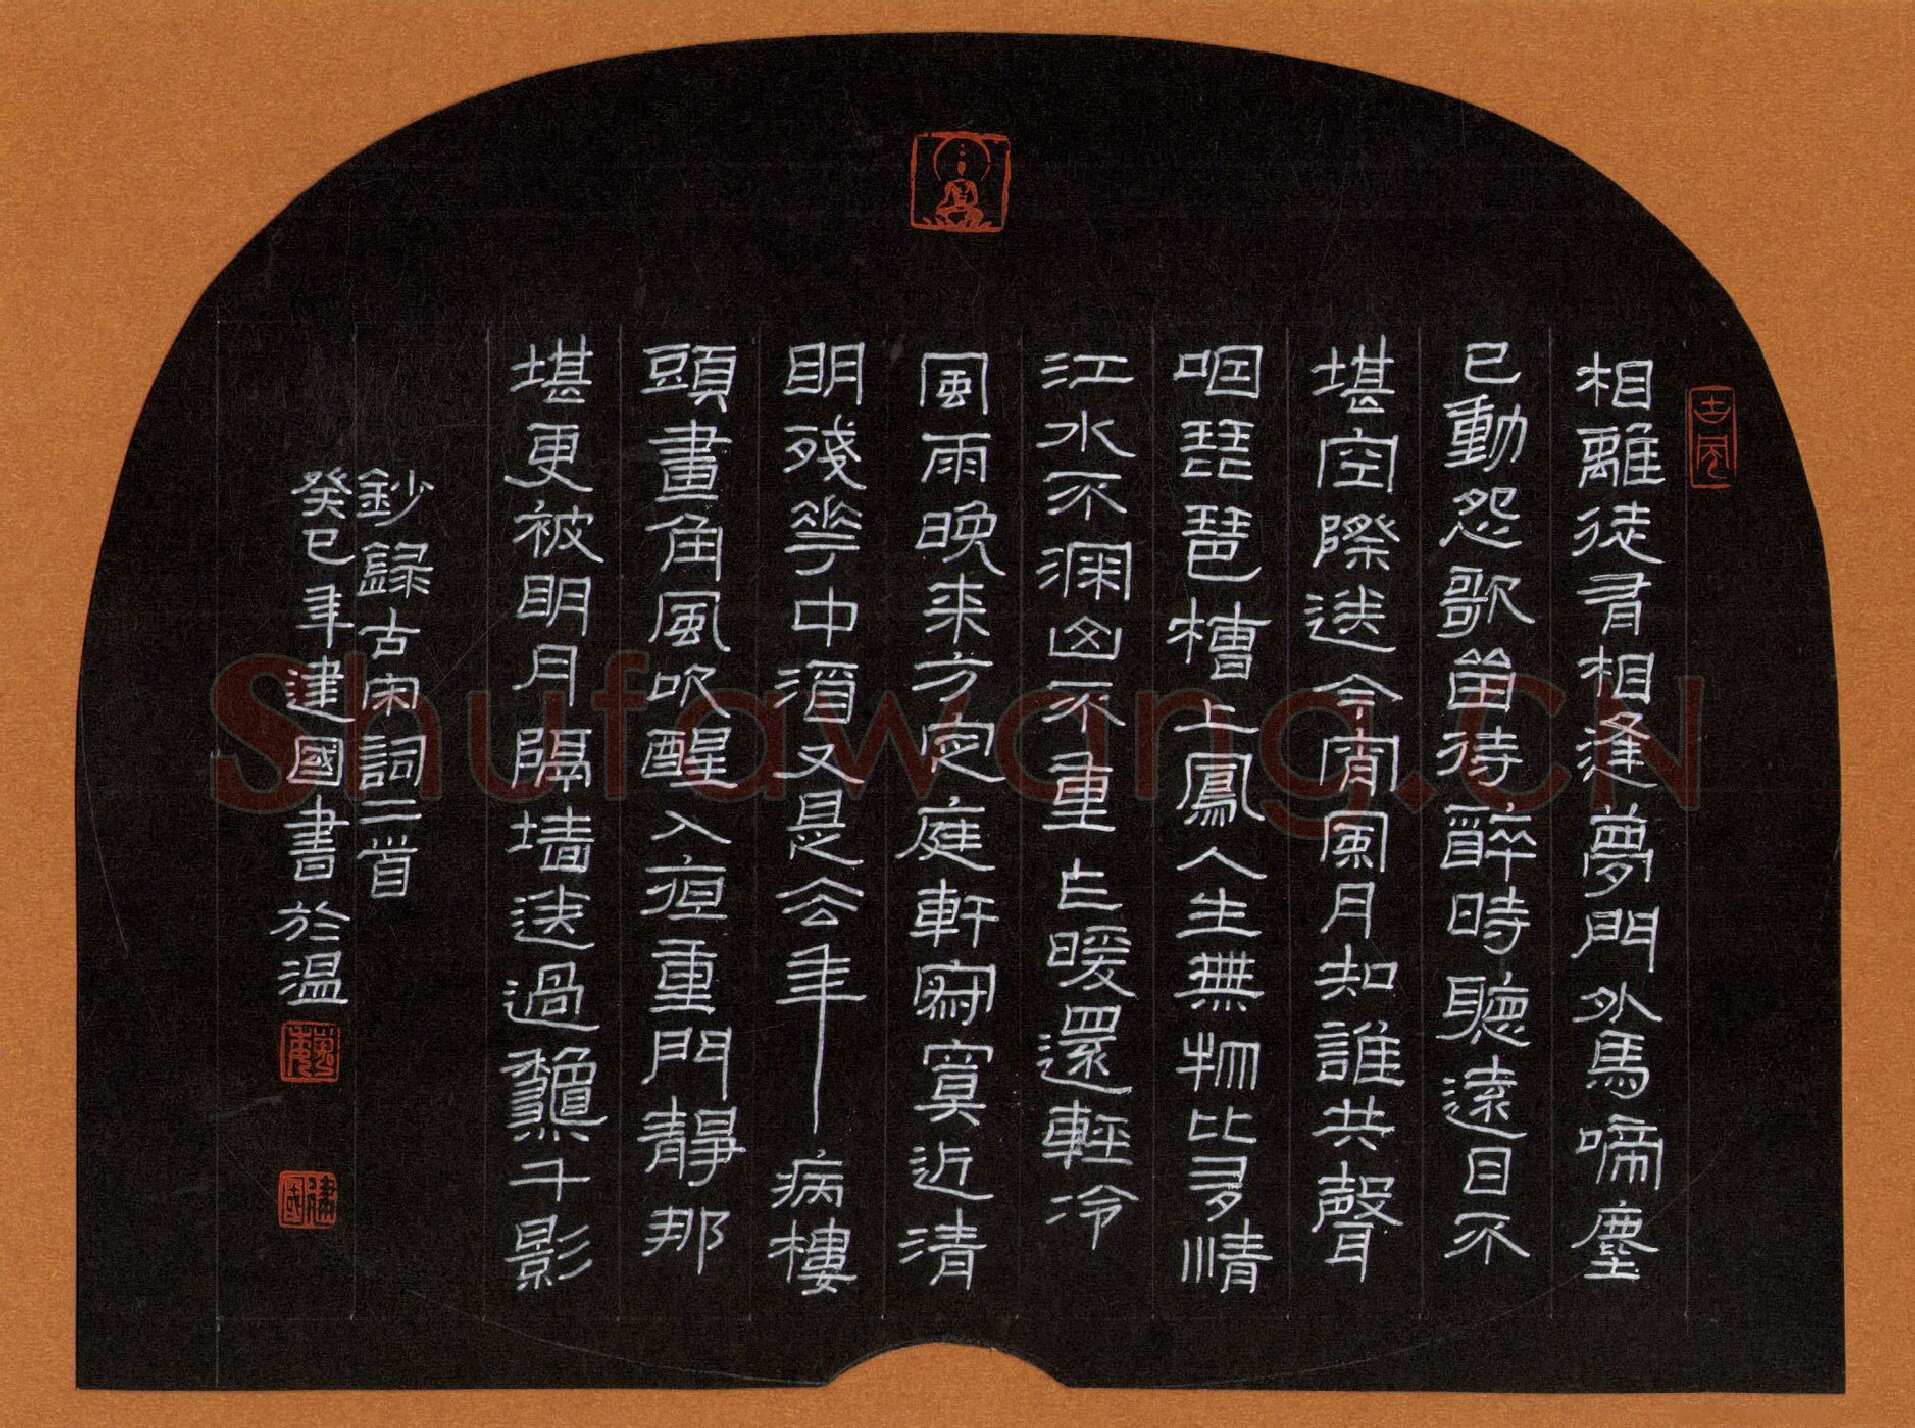 相離徒有相逢夢門外馬啼塵
已動怨歌留待醉時聽遠目不
堪空際送今宵風月知誰共聲
咽琵琶槽上鳳人生無物比多情
江水不深山不重乍暖還輕冷
風雨晚來方定庭軒寂寞近清
明殘花中酒又是去年病樓
頭畫角風吹醒入夜重門靜那
堪更被明月隔墙送過龝千影
鈔録古宋詞二首
癸巳年建國書於温
建國
Shufawang.CN